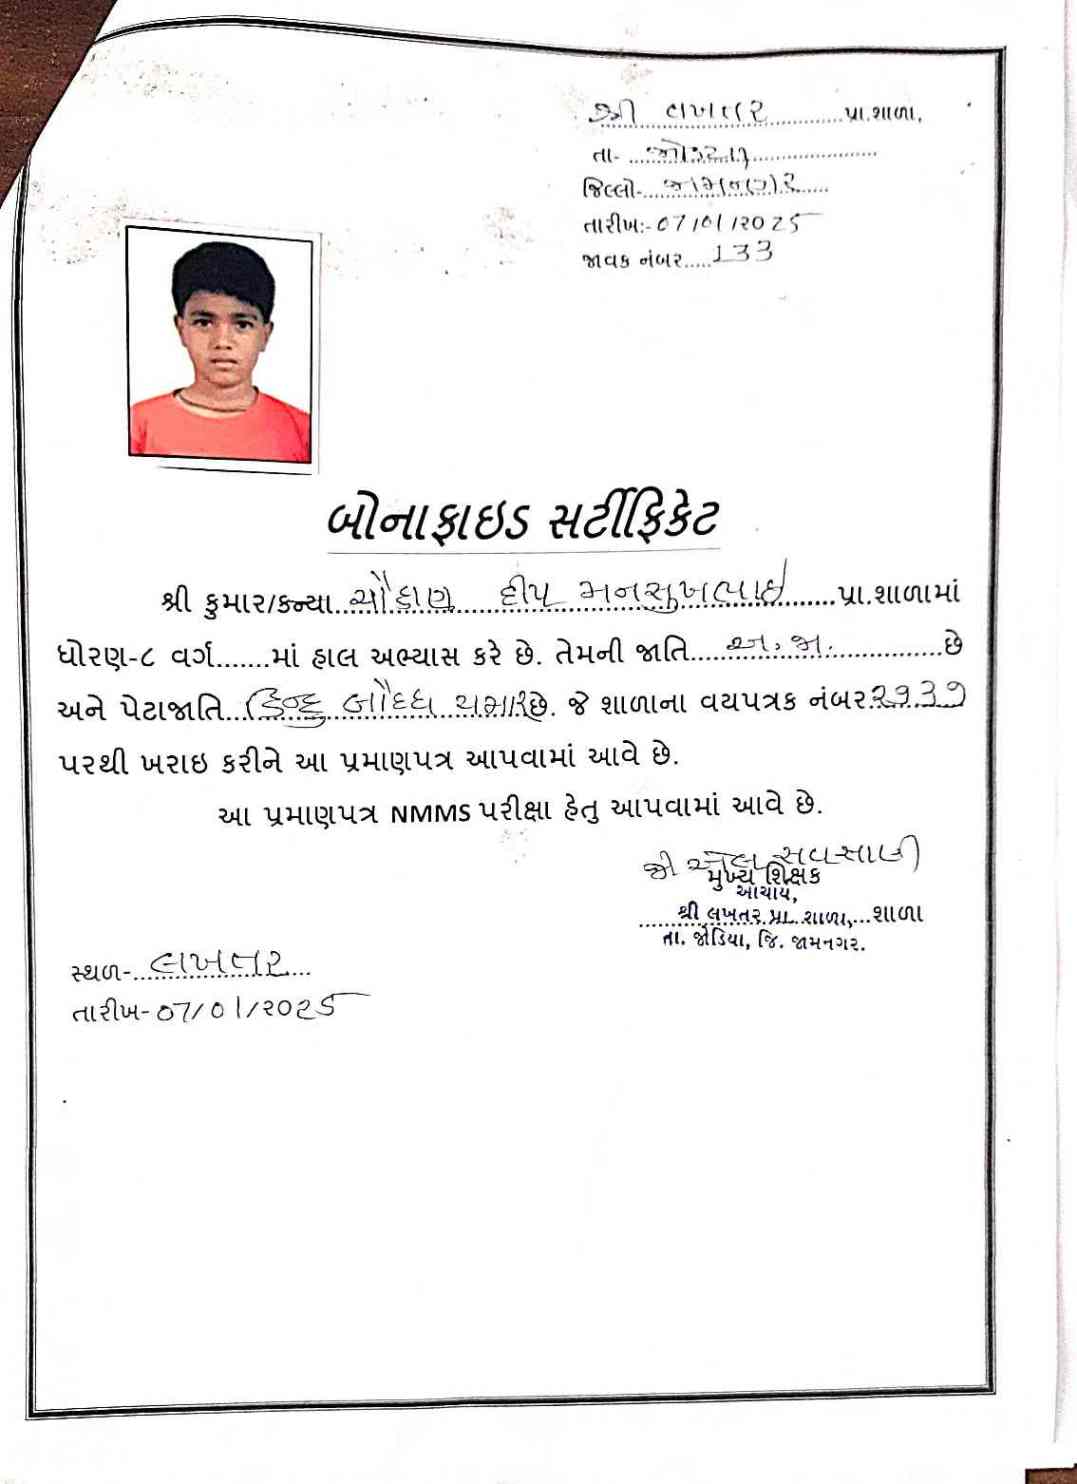 શ્રી લખતર પ્રા.શાળા,
તા- જોડીયા
જિલ્લો- જામનગર
તારીખ:- 07/01/2025
જાવક નંબર 133
બોનાફાઇડ સર્ટીફિકેટ
શ્રી કુમાર/કન્યા ચૌહાણ દીપ મનસુખભાઈ પ્રા.શાળામાં
ધોરણ-૮ વર્ગ.......માં હાલ અભ્યાસ કરે છે. તેમની જાતિ અ.જા. છે
અને પેટાજાતિ હિન્દુ બૌદ્ધ ચમાર છે. જે શાળાના વયપત્રક નંબર ૨૧૩૭
પરથી ખરાઇ કરીને આ પ્રમાણપત્ર આપવામાં આવે છે.
આ પ્રમાણપત્ર NMMS પરીક્ષા હેતુ આપવામાં આવે છે.
મુખ્ય શિક્ષક
આચાર્ય,
શ્રી લખતર પ્રા. શાળા, શાળા
તા. જોડિયા, જિ. જામનગર.
સ્થળ- લખતર
તારીખ- 07/01/2025